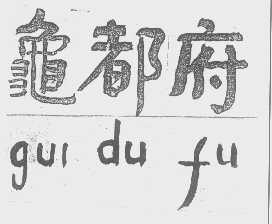 龜都府
gui du fu